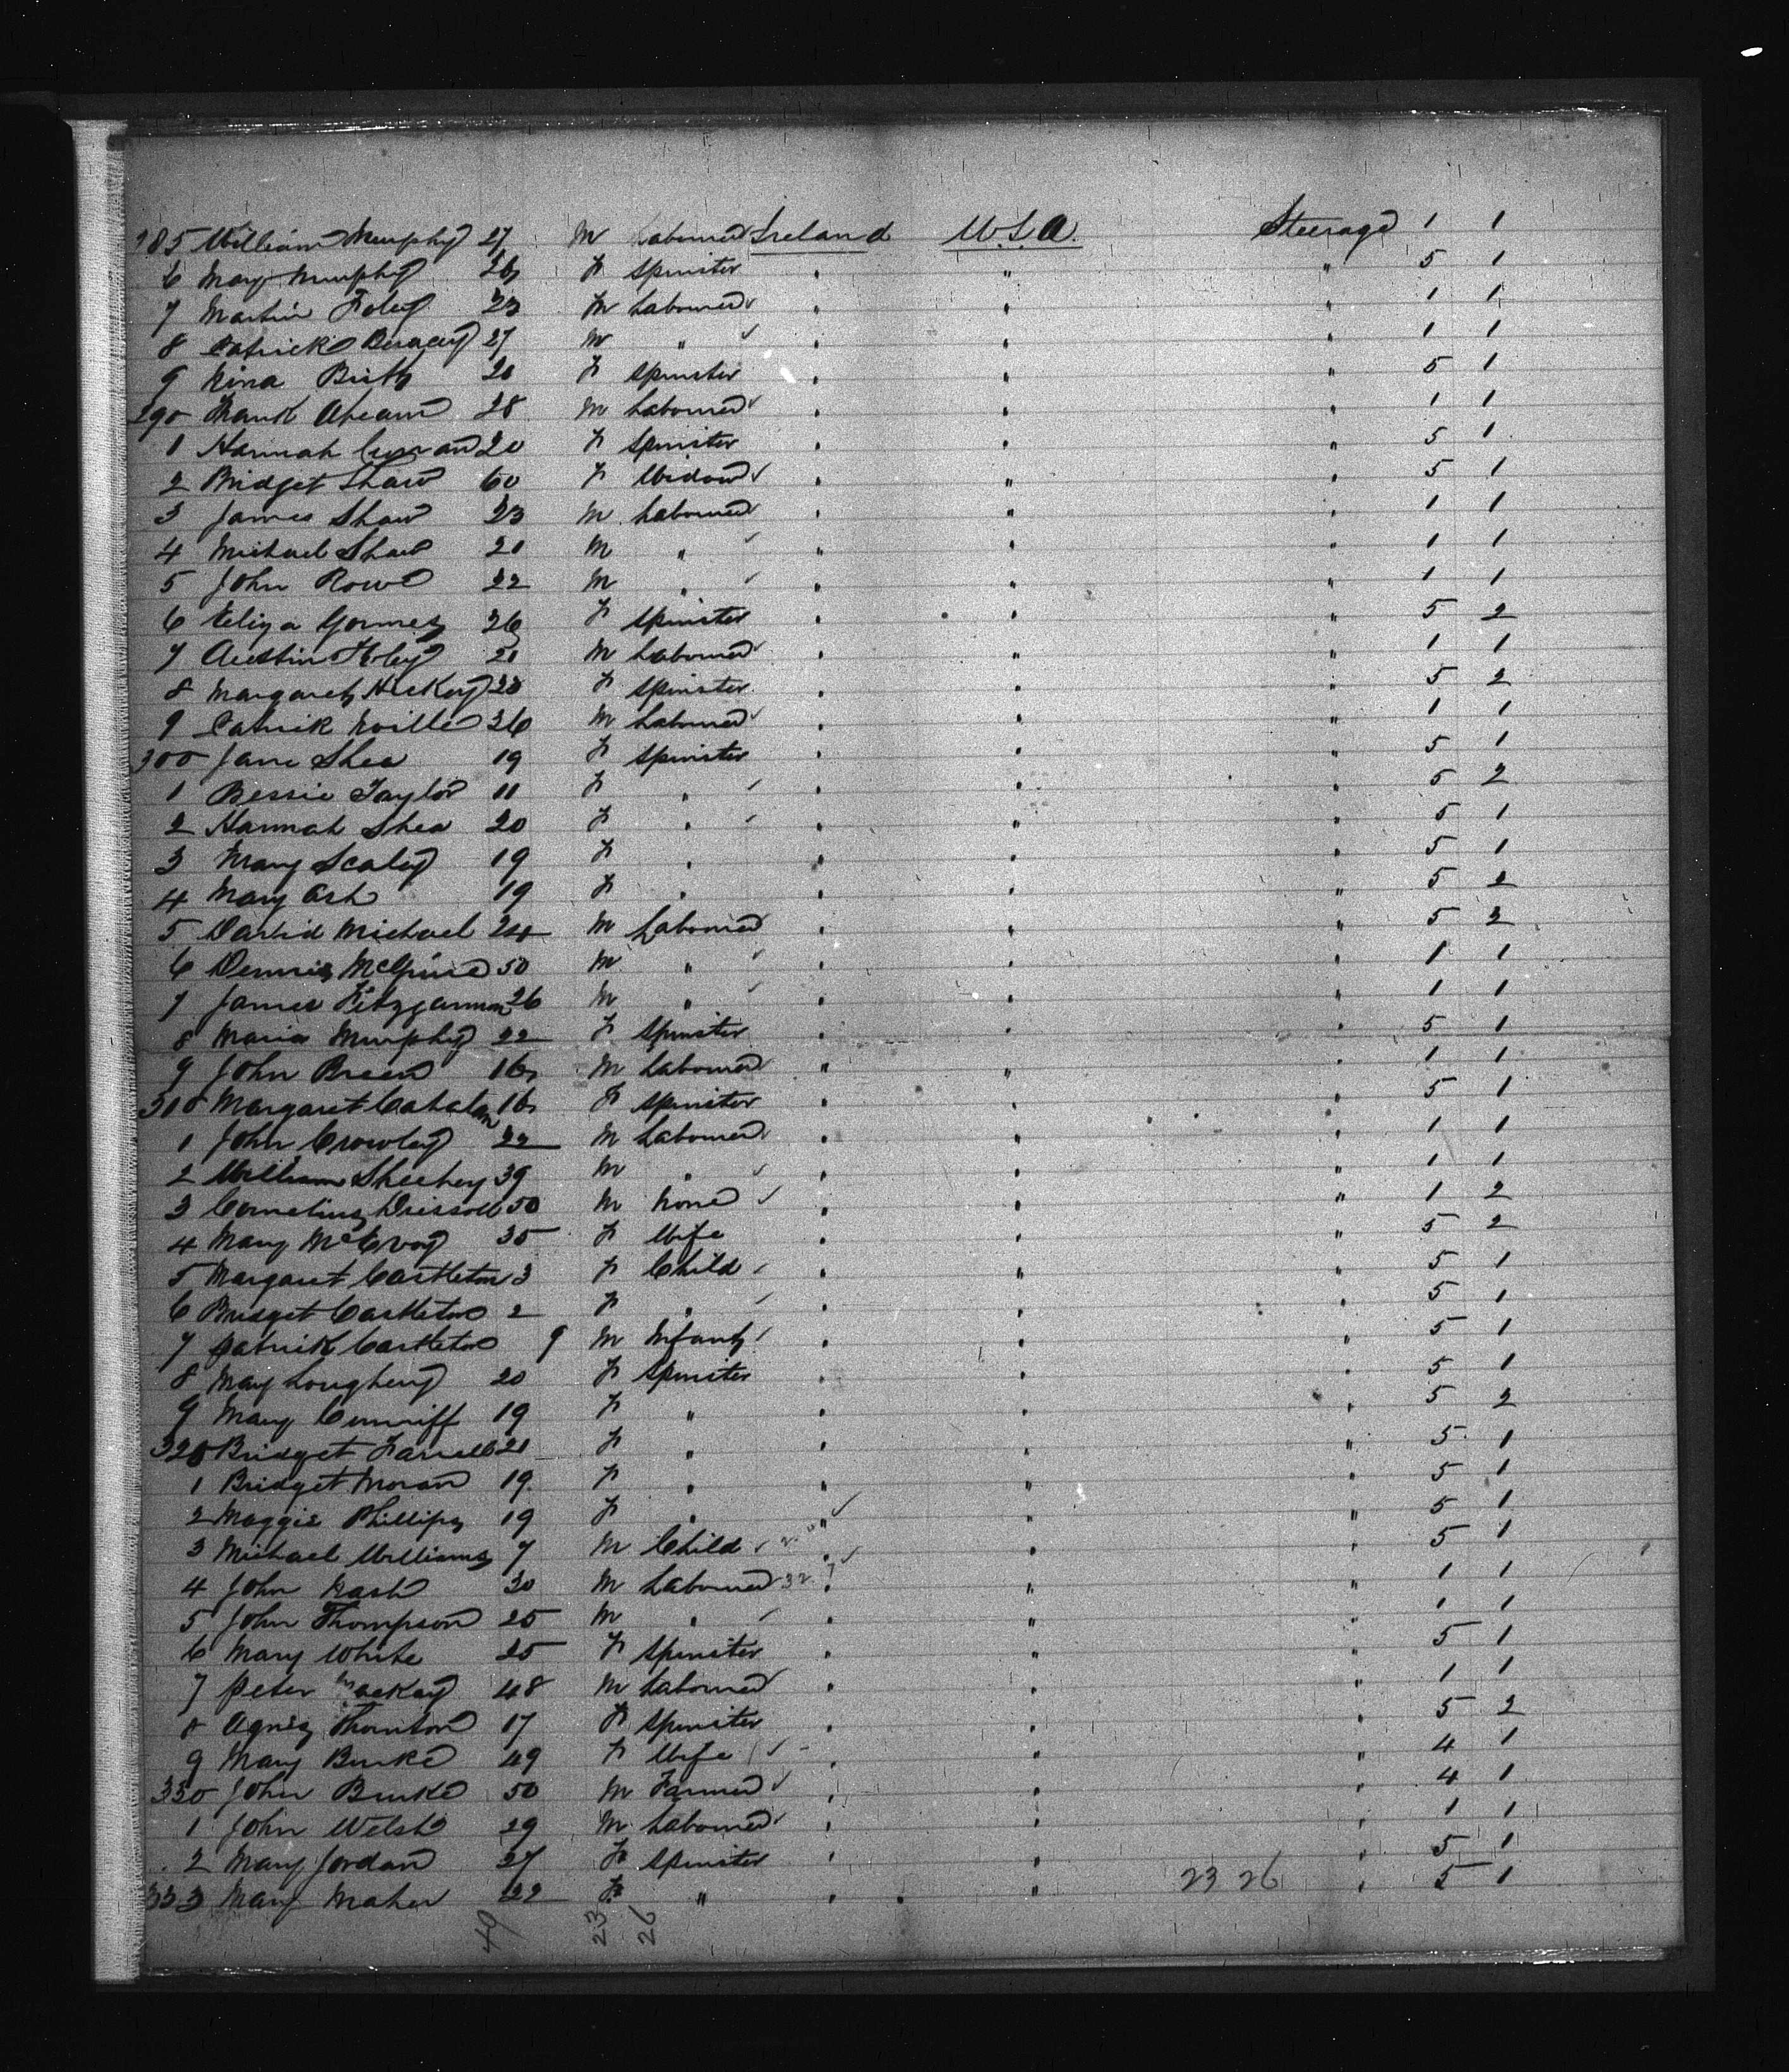 285 William Murphy 27 M Labourer Ireland U.S.A. Steerage 1 1
6 Mary Murphy 26 F Spinster " " " 5 1
7 Martin Foley 23 M Labourer " " " 1 1
8 Patrick 27 M " " " " 1 1
9 Nina 20 F Spinster " " " 5 1
290 Frank Ahearn 28 M Labourer " " " 1 1
1 Hannah 20 F Spinster " " " 5 1
2 Bridget Shaw 60 F Widow " " " 5 1
3 James Shaw 23 M Labourer " " " 1 1
4 Michael Shaw 21 M " " " " 1 1
5 John Rowe 22 M " " " " 1 1
6 Eliza 26 F Spinster " " " 5 2
7 Austin Foley 21 M Labourer " " " 1 1
8 Margaret Hickey F Spinster " " " 5 2
9 Patrick Neville 26 M Labourer " " " 1 1
300 Jane Shea 19 F Spinster " " " 5 1
1 Bessie Taylor 11 F " " " " 5 2
2 Hannah Shea 20 F " " " " 5 1
3 Mary Scaley 19 F " " " " 5 1
4 Mary Ash 19 F " " " " 5 2
5 David Michael 24 M Labourer " " " 5 2
6 Dennis 50 M " " " " 1 1
7 James 26 M " " " " 1 1
8 Maria Murphy 22 F Spinster " " " 5 1
9 John Breen 16 M Labourer " " " 1 1
310 Margaret Cahalan 16 F Spinster " " " 5 1
1 John Crowley 22 M Labourer " " " 1 1
2 William Sheehey 39 M " " " " 1 1
3 Cornelius Driscoll 50 M None " " " 1 2
4 Mary McEvoy 35 F Wife " " " 5 2
5 Margaret Castleton 3 F Child " " " 5 1
6 Bridget Castleton 2 F " " " " 5 1
7 Patrick Castleton 9 M Infant " " " 5 1
8 May Lougheny 20 F Spinster " " " 5 1
9 Mary Cunniff 19 F " " " " 5 2
320 Bridget Farrell 21 F " " " " 5 1
1 Bridget Moran 19 F " " " " 5 1
2 Maggie Phillips 19 F " " " " 5 1
3 Michael Williams 7 M Child " " " 5 1
4 John Nash 30 M Labourer " " " 1 1
5 John Thompson 25 M " " " " 1 1
6 Mary White 25 F Spinster " " " 5 1
7 Peter Mackay 48 M Labourer " " " 1 1
8 Agnes Thornton 17 F Spinster " " " 5 2
9 Mary Burke 49 F Wife " " " 4 1
330 John Burke 50 M Farmer " " " 4 1
1 John Welsh 29 M Labourer " " " 1 1
2 Mary Jordan 27 F Spinster " " " 5 1
333 Mary Maher 22 F " " " 23 26 " 5 1
49 23 26